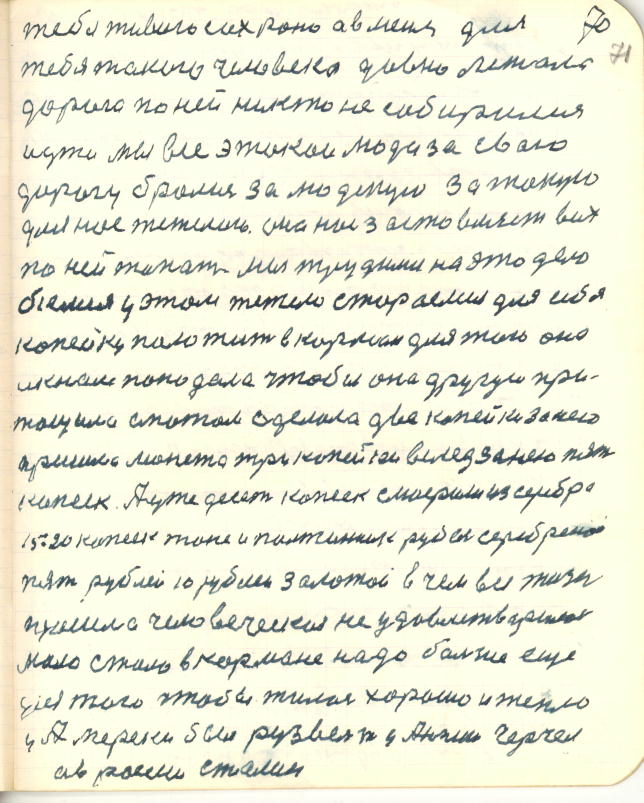 тебя живого сохроно а в меня для 70
71
тебя такого человека довно лежала
дорога по ней никто не собирился
идти мы все этокои люди за свою
дорогу бролися за людскую за такую
для нас тежолоя она нас заставляет вих
по ней топать мы трудими на это дело
бьемся у этом тежело стораемся для себя
копейку положит в корман для того она
и к нам поподала чтобы она другую при-
тощила а потом сделола две копейки за нею
пришла монета три копейки вслед за нею пят
копеек. А уже десят копеек смоерили из серебра
15-20 копеек тоже и полтинник рубел серебреной
пят рублей 10 рублей золотой в чем вся жизн
прошла человеческоя не удовлетварилос
мало стало в кормане надо болше еще
для того чтобы жилос хорошо и тепло
у Америки был рузвелт у Англии Черчел
а в росии сталин